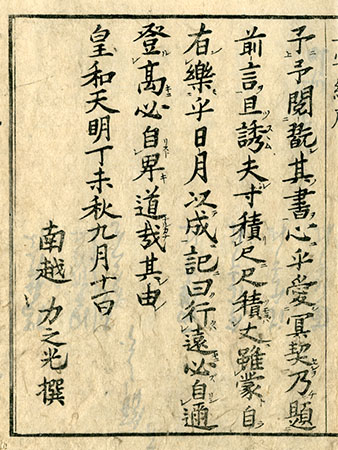 予予閱翫其書心乎愛冥契乃題
前言且誘夫寸積尺尺積丈雖蒙自
有樂乎日月以成記曰行遠必自邇
登高必自卑道哉其由
皇和天明丁未秋九月十一日
南越 力之光撰